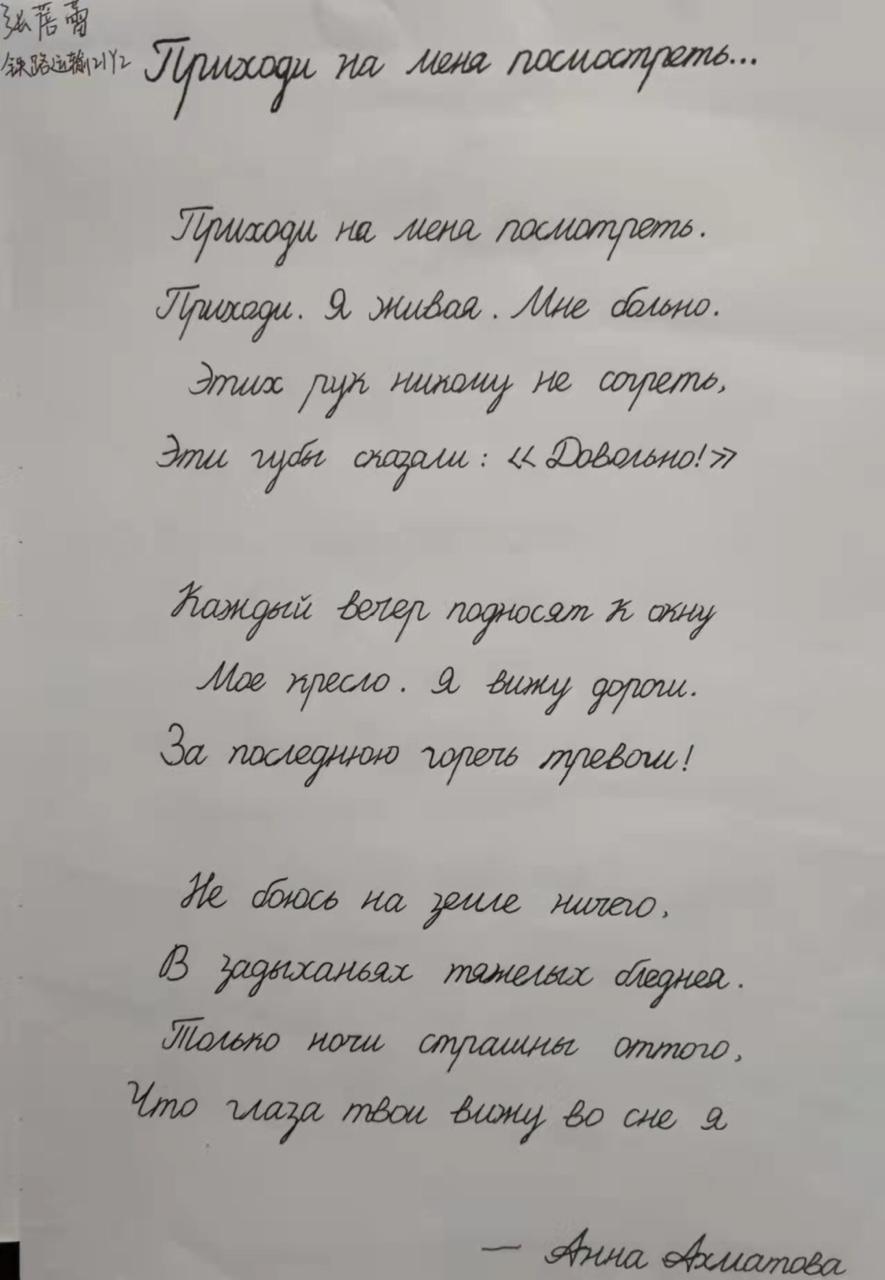 张蓓蕾
铁路运输21Y2
Приходи на меня посмостреть...
Приходи на меня посмотреть.
Приходи. Я живая. Мне больно.
Этих рук никому не согреть,
Эти губы сказали: «Довольно!»
Каждый вечер подносят к окну
Мое кресло. Я вижу дороги.
За последнюю горечь тревоги!
Не боюсь на земле ничего,
В задыханьях тяжелых бледнея.
Только ночи страшны оттого,
Что глаза твои вижу во сне я
— Анна Ахматова